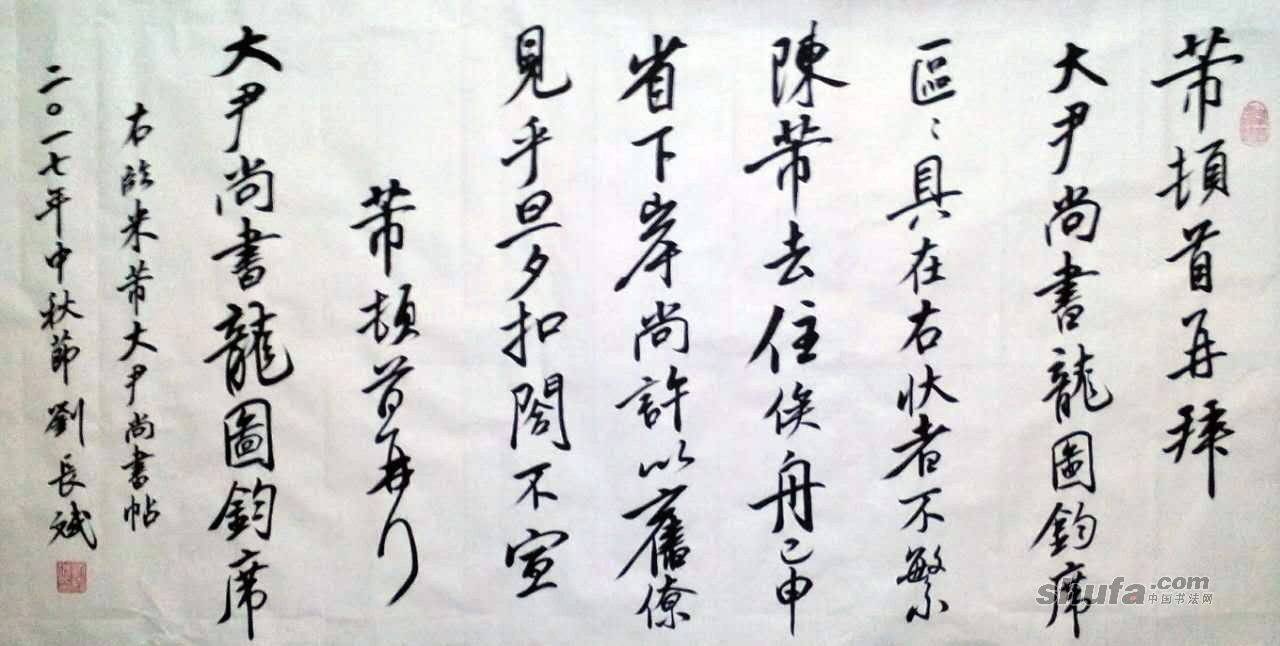 芾頓首再拜
大尹尚書龍圖鈞席
區〻具在右狀者不繁
陳芾去住俟舟已申
省下岸尚許以舊僚
見乎旦夕扣閤不宣
芾頓首再拜
大尹尚書龍圖鈞席
右臨米芾大尹尚書帖
二〇一七年中秋節劉長斌
shufa.com
中国书法网